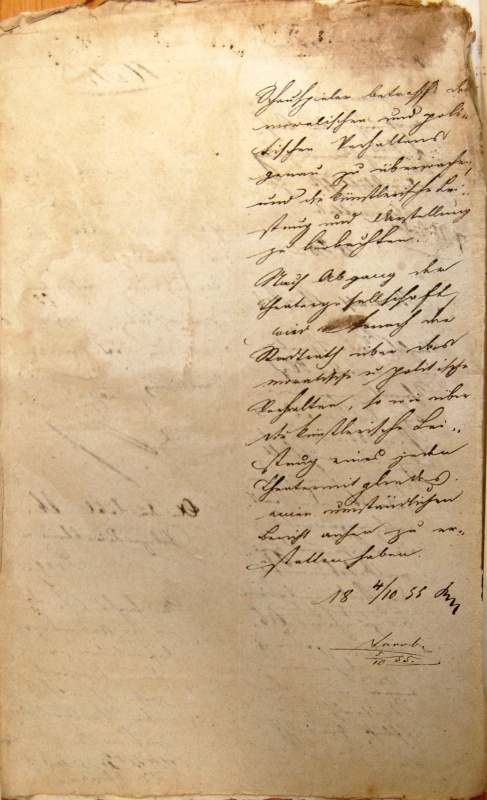 Schauspieler betreffs des
moralischen und poli-
tischen Verhaltens
genau zu überwachen,
und die künstlerische Lei-
stung und Darstellung
zu beobachten.
Nach Abgang der
Theatergesellschaft
wird der
Stadtrath über das
moralische u politische
Verhalten, so wie über
die künstlerische Lei-
stung eines jeden
Theatermitgliedes
einen umständlichen
Bericht anher zu er-
statten haben.
18 4/10 55
5/10 55.